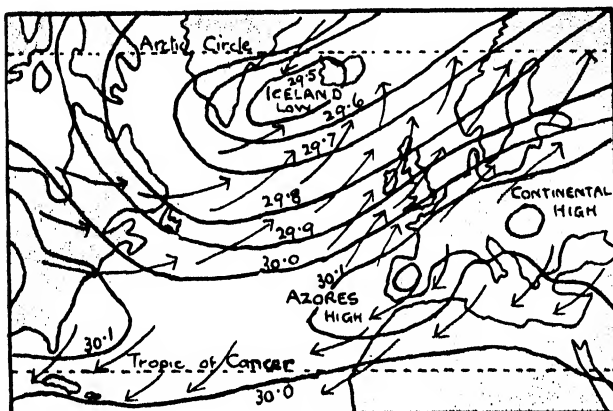 Arctic Circle
29.5
ICELAND
LOW
29.6
29.7
29.8
29.9
30.0
30.1
CONTINENTAL
HIGH
AZORES
HIGH
30.1
Tropic of Cancer
30.0